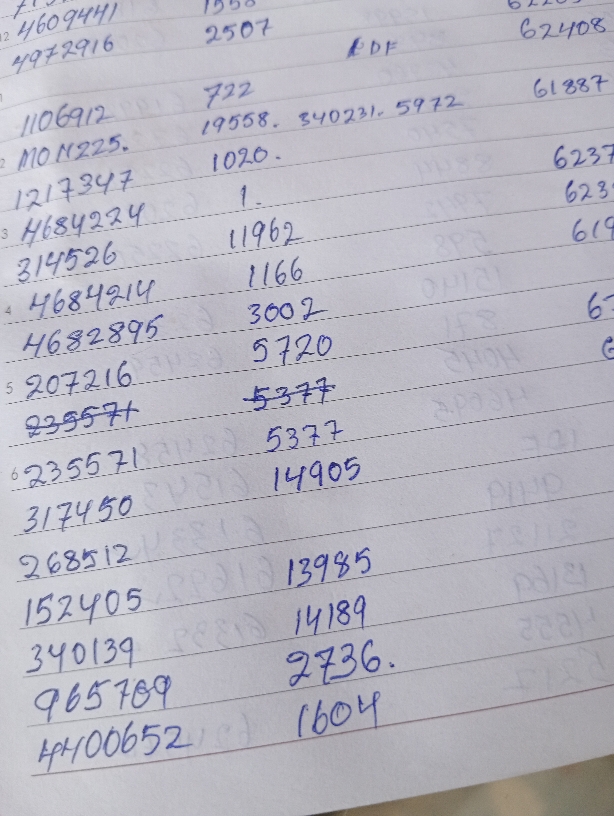 4609441
4972916 2507 62408
1106912 722
MON225. 19558. 340231. 5972 61887
1217347 1020.
4684224 1. 6237
314526 11962 623
4684214 1166 619
4682895 3002
207216 5720
235571 5377
235571 5377
317450 14905
268512
152405 13985
340139 14189
965709 2736.
4400652 1604